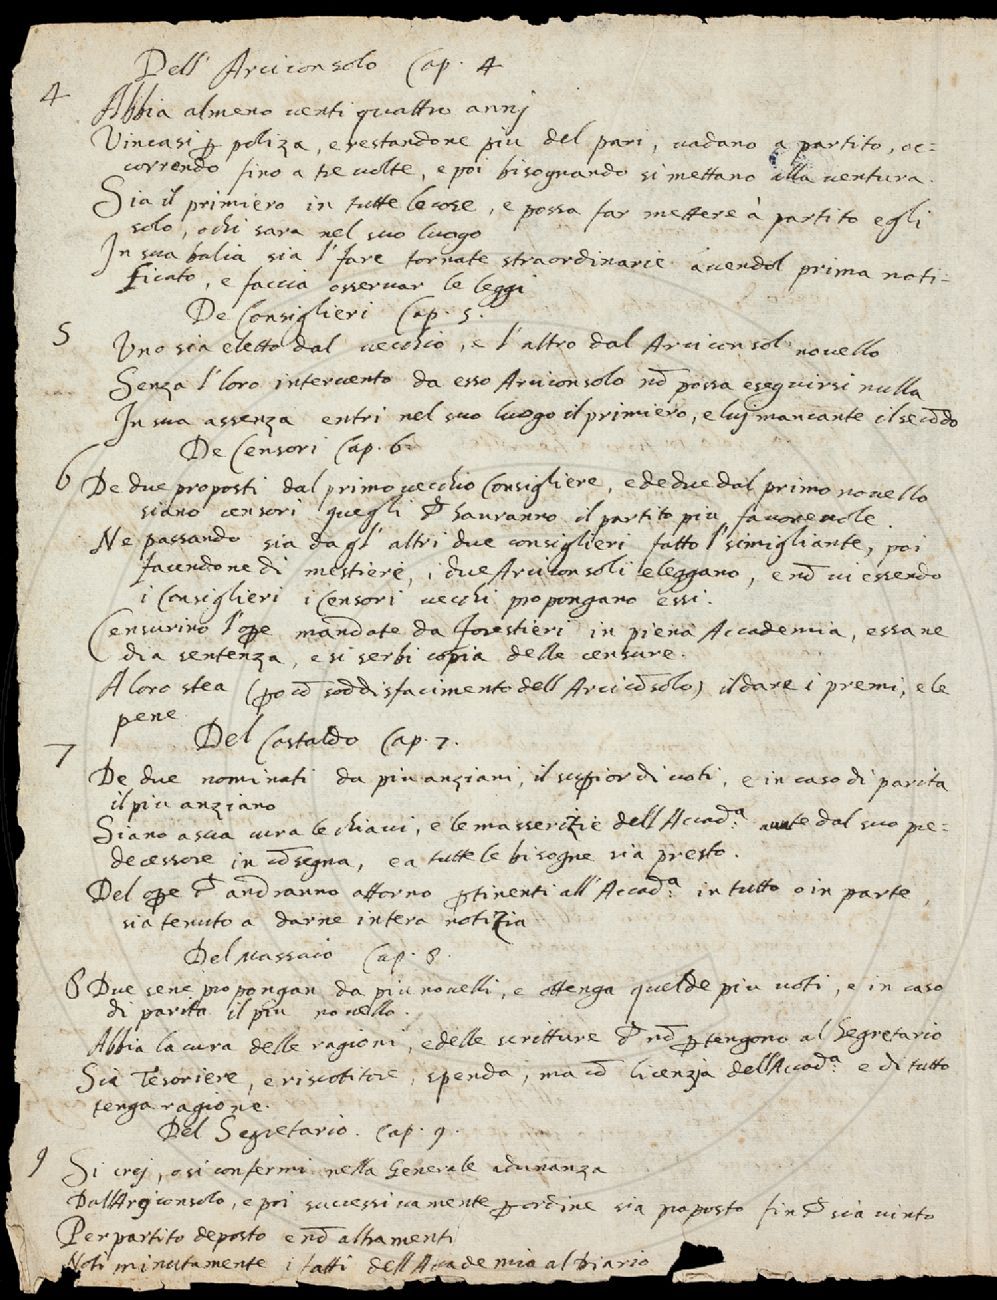 Dell' Arciconsolo Cap. 4
4
Abbia almeno venti quattro annj
Vincasi ꝑ poliza, e restandone piu del pari, vadano a partito, oc=
correndo fino a tre volte, e poi bisognando si mettano alla ventura.
Sia il primiero in tutte le cose, e possa far mettere à partito egli
solo, o chi sara nel suo luogo
In sua balia sia l' fare tornate straordinarie avendol prima noti-
ficato, e faccia osservar le leggi
De Consiglieri Cap. 5.
5
Uno sia eletto dal vecchio, e l' altro dal Arciconsol novello
Senza l' loro intervento da esso Arciconsolo nō possa eseguirsi nulla
In sua assenza entri nel suo luogo il primiero, e luj mancante il secōdo
De Censori Cap. 6.
6 De due proposti dal primo vecchio Consigliere, e de due dal primo novello
siano censori quegli ch̄ hauranno il partito piu favorevole.
Ne passando sia dagl' altri due consiglieri fatto l' simigliante, poi
facendone di mestiere, i due Arciconsoli eleggano, e nō vi essendo
i Consiglieri i Censori vecchi propongano essi.
Censurino l' oꝑe mandate da forestieri in piena Accademia, essa ne
dia sentenza, e si serbi copia delle censure.
A loro stea (ꝑo cō soddisfacimento dell Arcicōsolo) il dare i premi, e le
pene
Del Castaldo Cap. 7.
7
De due nominati da piu anziani, il suꝑior di voti, e in caso di parita
il piu anziano
Siano a sua cura le chiavi, e le masserizie dell Accad.ª aute dal suo pre=
decessore in cōsegna, e a tutte le bisogne sia presto.
Del oꝑe ch̄ andranno attorno ꝑtinenti all' Accad.ª in tutto o in parte
sia tenuto a darne intera notizia
Del Massaio Cap. 8.
8 Due sene propongan da piu novelli, e ottenga quel de piu voti, e in caso
di parita il piu novello.
Abbia la cura delle ragioni, e delle scritture ch̄ nō ꝑtengono al Segretario
Sia Tesoriere, e riscotitore, spenda, ma cō licenzia dell' Accad.ª e di tutto
tenga ragione.
Del Segretario. Cap. 9.
9
Si crej, o si confermi nella Generale adunanza
Dall Arciconsolo, e poi successivamente ꝑ ordine sia proposto fin ch̄ sia vinto
Per partito deposto e nō altramenti
Noti minutamente i fatti dell Accademia al Diario